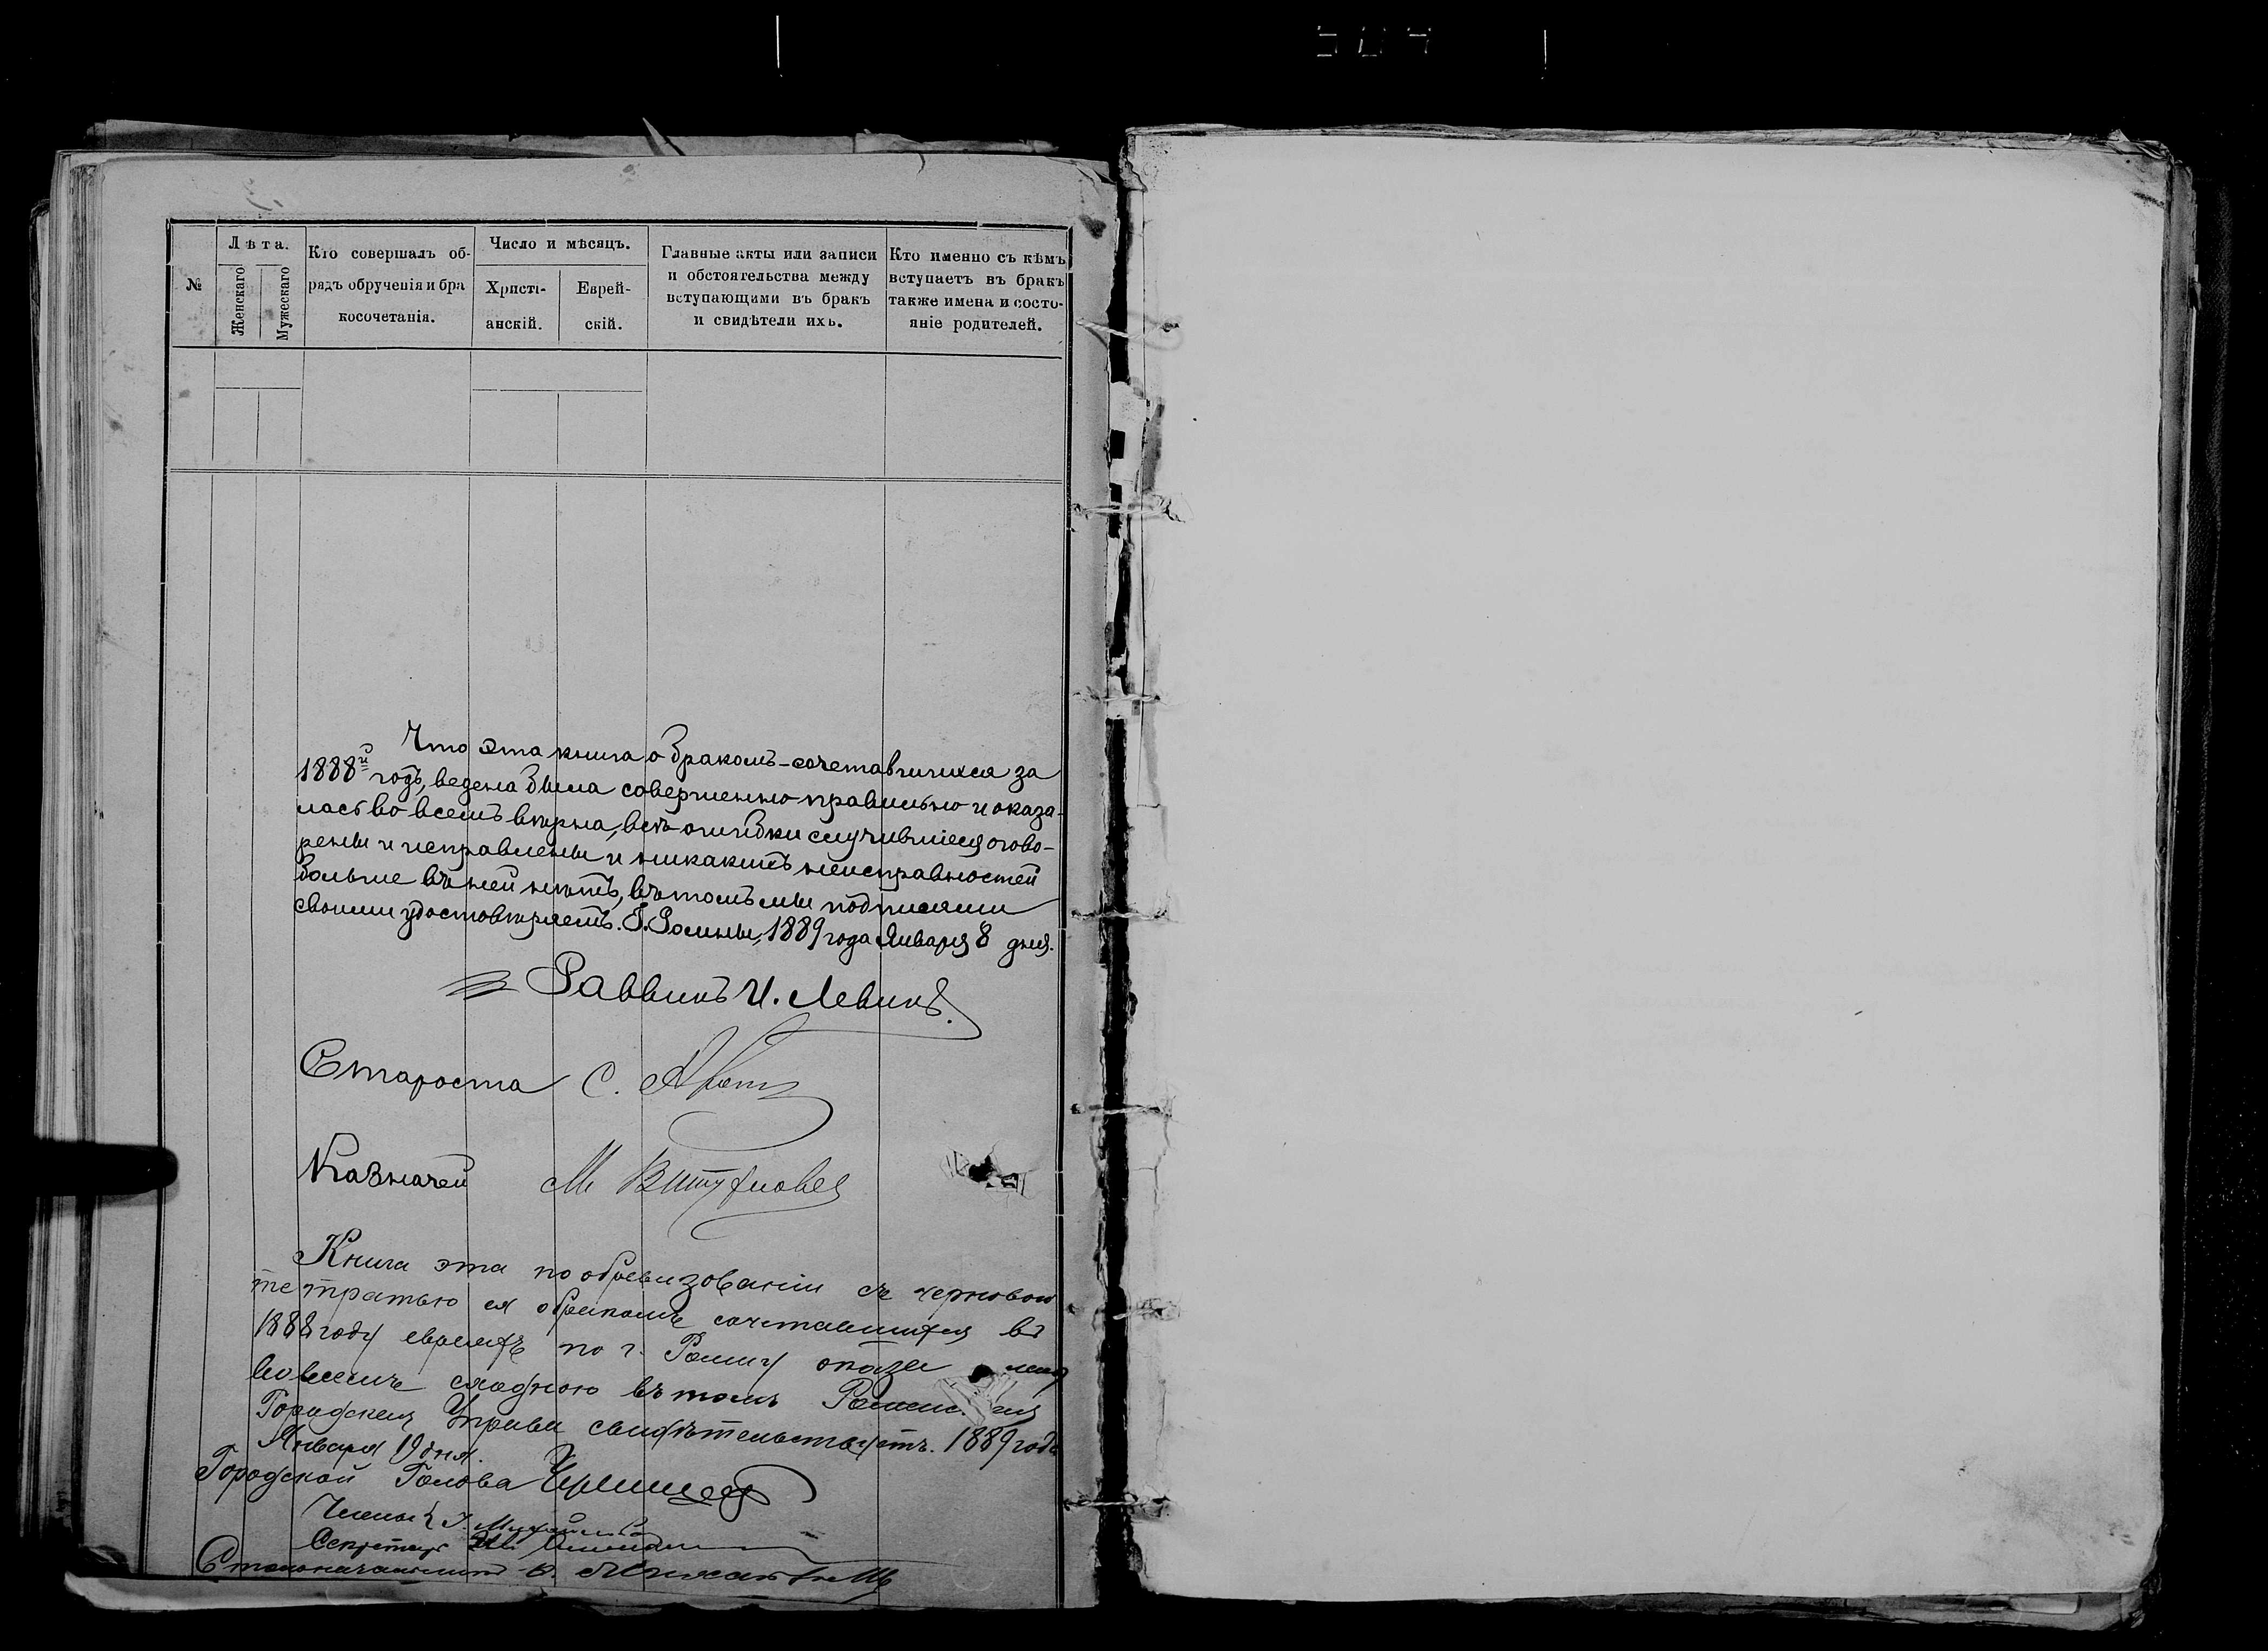 №
Лѣта.
Женскаго
Мужескаго
Кто совершалъ об-
рядъ обрученія и бра
косочетанія.
Число и мѣсяцъ.
Христі-
анскій.
Еврей-
скій.
Главные акты или записи
и обстоятельства между
вступающими въ бракъ
и свидѣтели ихъ.
Кто именно съ кѣмъ
вступаетъ въ бракъ
также имена и состо-
яніе родителей.
Что эта книга о бракомъ-сочетавшихся за
1888й годъ, ведена была совершенно правильно и оказа-
лась во всемъ вѣрна, всѣ ошибки случившіеся огово-
рены и исправлены и никакихъ неисправностей
больше въ ней нѣтъ, въ томъ мы подписями
своими удостовѣряемъ. Г. Ромны, 1889 года Января 8 дня.
Раввинъ И. Левинъ.
Староста С.
Казначей М
Книга эта по обревизованіи съ черновою
тетратью о бракомъ сочетавшихся въ
1888 году евреяхъ по г. Ромну
во всемъ сходною въ томъ
Городская Управа свидѣтельствуетъ. 1889 года
Января 19 дня.
Городской Голова
Члены
Секретарь
Столоначальникъ